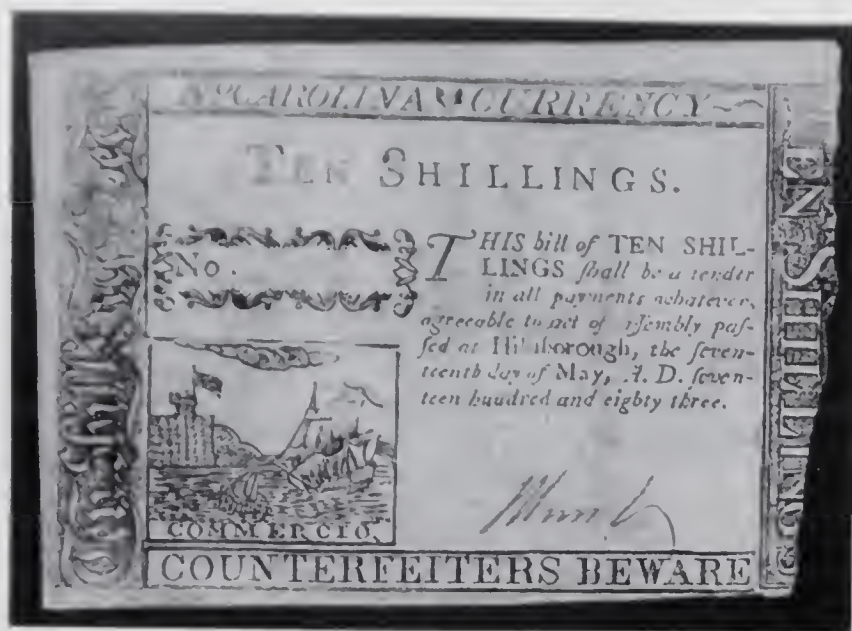 Nº CAROLINA CURRENCY
TEN SHILLINGS.
No.
THIS bill of TEN SHIL-
LINGS ſhall be a tender
in all payments whatever,
agreeable to act of aſſembly paſ-
ſed at Hillſborough, the ſeven-
teenth day of May, A. D. ſeven-
teen hundred and eighty three.
COMMERCIO.
COUNTERFEITERS BEWARE
EN SHILLINGS